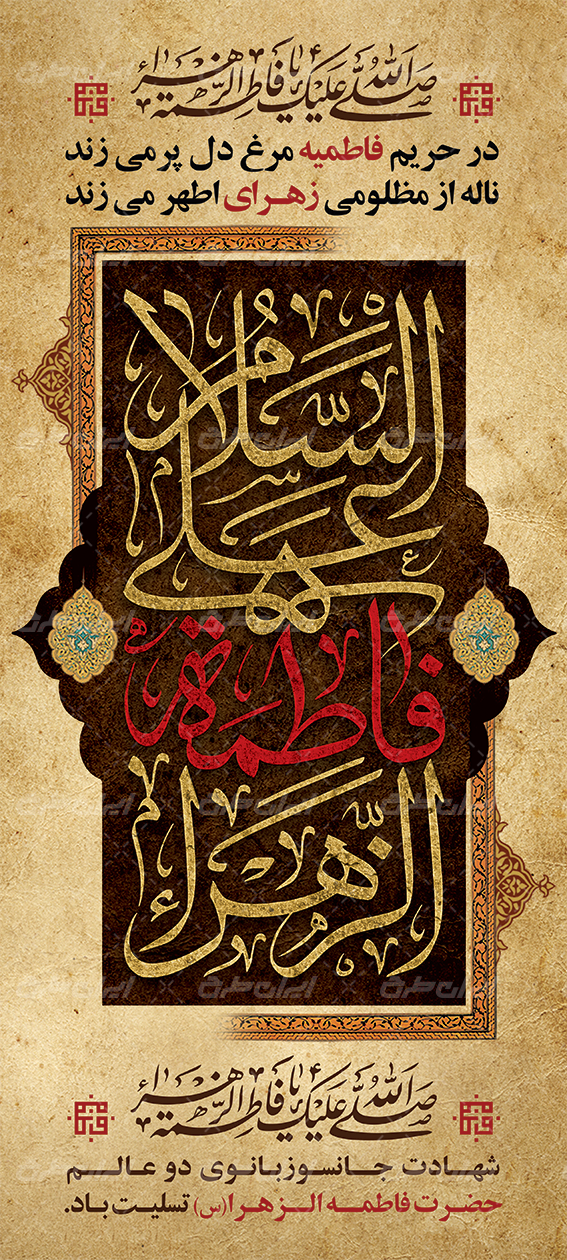 صلی الله علیک یا فاطمة الزهراء
در حریم فاطمیه مرغ دل پر می زند
ناله از مظلومی زهرای اطهر می زند
السلام
علی
فاطمة
الزهراء
صلی الله علیک یا فاطمة الزهراء
شهادت جانسوز بانوی دو عالم
حضرت فاطمه الزهرا(س) تسلیت باد.